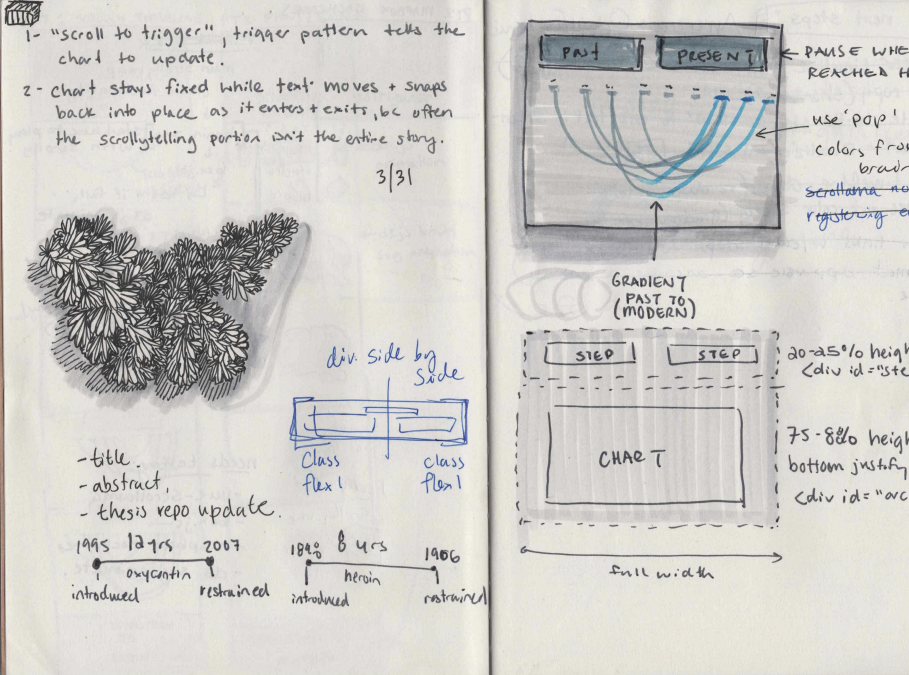 1- "scroll to trigger", trigger pattern tells the
chart to update.
2- chart stays fixed while text moves + snaps
back into place as it enters + exits, bc often
the scrollytelling portion isn't the entire story.
3/31
div. side by
side
class
flex 1
class
flex 1
- title.
- abstract
- thesis repo update.
1995 12 yrs 2007
oxycontin
introduced restrained
8 yrs 1906
heroin
introduced restrained
PAST PRESENT
PAUSE WHE
REACHED H
use 'pop'
colors fro
scrollama no
registering e
GRADIENT
(PAST TO
MODERN)
STEP STEP
20-25% heigh
<div id="ste
CHART
75-80% heigh
bottom justify
<div id="arc
full width